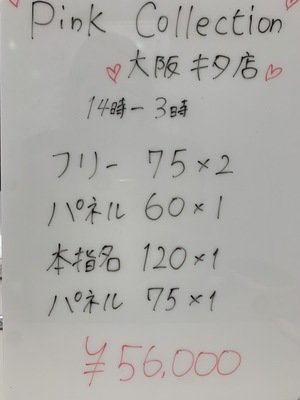 Pink Collection
♡大阪キタ店♡
14時-3時
フリー 75×2
パネル 60×1
本指名 120×1
パネル 75×1
¥56,000